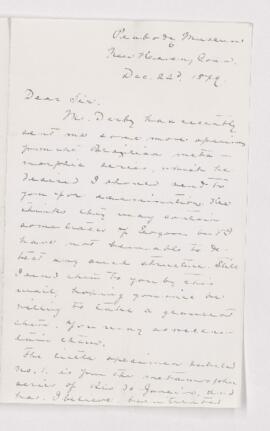 Peabody Museum
New Haven, Conn.
Dec. 22d, 1879.
Dear Sir.
Mr. Derby has recently
sent me some more specimens
from the Brazilian meta-
morphic series, which he
desired I should send to
you for examination. He
thinks they may contain
some traces of Eozoon but I
have not been able to de-
tect any such structure. Still
I send them to you by this
mail, hoping you may be
willing to take a glance at
them. You may as well re-
tain them.
The little specimen labeled
No. 1. is from the metamorphic
series of Rio de Janeiro, and
has, I believe been treated